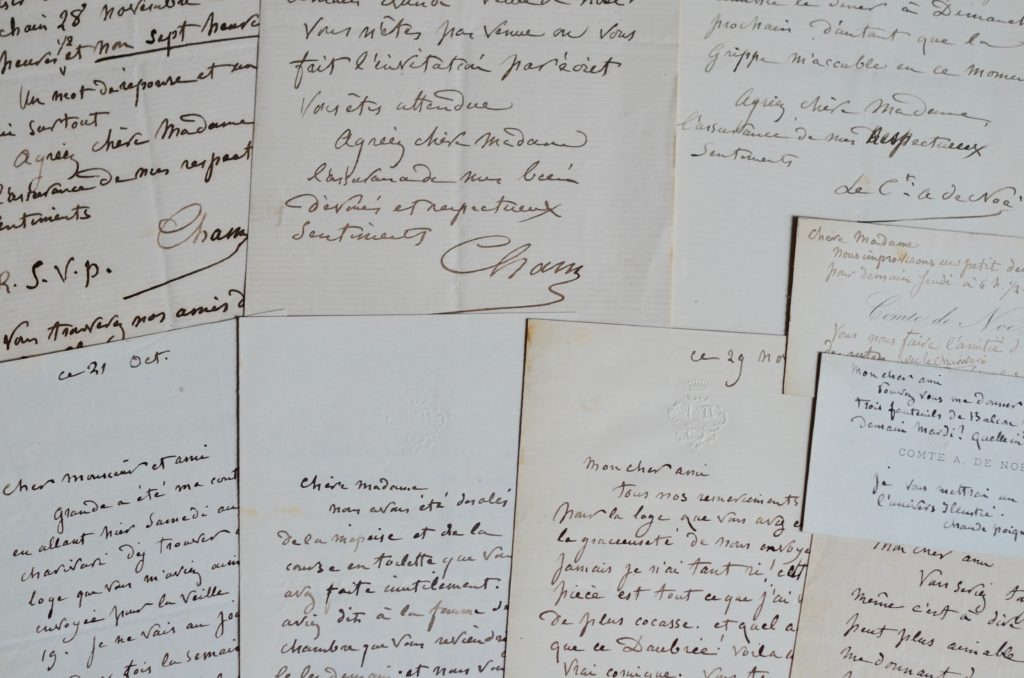 chain 28 novembre
heures 1/2 et non sept heures
Un mot de réponse et
surtout
Agréez chère Madame
l'assurance de mes respect
sentiments
Cham
R. S. V. p.
vous trouverez nos amis d
Vous n'êtes pas venue on vous
fait l'invitation par écrit
Vous êtes attendue
Agréez chère madame
l'assurance de mes bien
dévoués et respectueux
Sentiments
Cham
à Dimanc
prochain d'autant que la
Grippe m'accable en ce momen
Agréez chère Madame
l'assurance de mes Respectueux
Sentiments
Le Cte A de Noé
Chère Madame
Nous improvisons un petit
pour demain Jeudi à 6 h 1/2
Comte de Noé
Vous nous faire l'amitié d
mon cher ami
pouvez vous me donner
trois fauteuils de Balcon
Demain Mardi!
COMTE A. DE NOÉ
je vous mettrai au
l'univers Illustré.
chaude poign
ce 21 Oct.
Cher monsieur et ami
Grande a été ma
en allant hier Samedi au
charivari d'y trouver
loge que vous m'aviez
envoyée pour la veille
19. Je ne vais au jo
fois la semain
Chère madame
nous avons été désolés
de la méprise et de la
course en toilette que vou
avez faite inutilement.
aviez dit à la femme de
chambre que vous reviendre
le lendemain. et nous
ce 29 No
Mon cher ami
tous nos remerciements
pour la loge que vous avez e
la gracieuseté de nous envoye
Jamais je n'ai tant ri! c'est
pièce est tout ce que j'ai
de plus cocasse. et quel a
que ce Daubrée! Voilà
vrai comique.
Mon cher ami
Vous seriez
même c'est à dire
peut plus aimable
me donnant